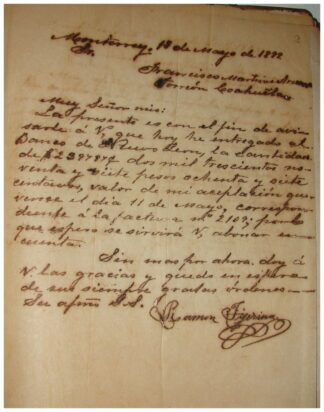 Monterrey, 18 de Mayo de 1892
Sr.
Francisco Martinez
Torreón Coahuila.
Muy Señor mio:
La presente es con el fin de avi
sarle á V, que hoy he entregado al
Banco de Nuevo León, la cantidad
de dos mil trescientos no
venta y siete pesos ochenta y siete
centavos, valor de mi aceptación que
vence el dia 11 de Mayo, correspon
diente á la factura nº por lo
que espero se servirá V, abonar en
cuenta.
Sin mas por ahora, doy á
V. las gracias y quedo en espera
de sus siempre gratas ordenes
Su afmo S. S.
Ramon